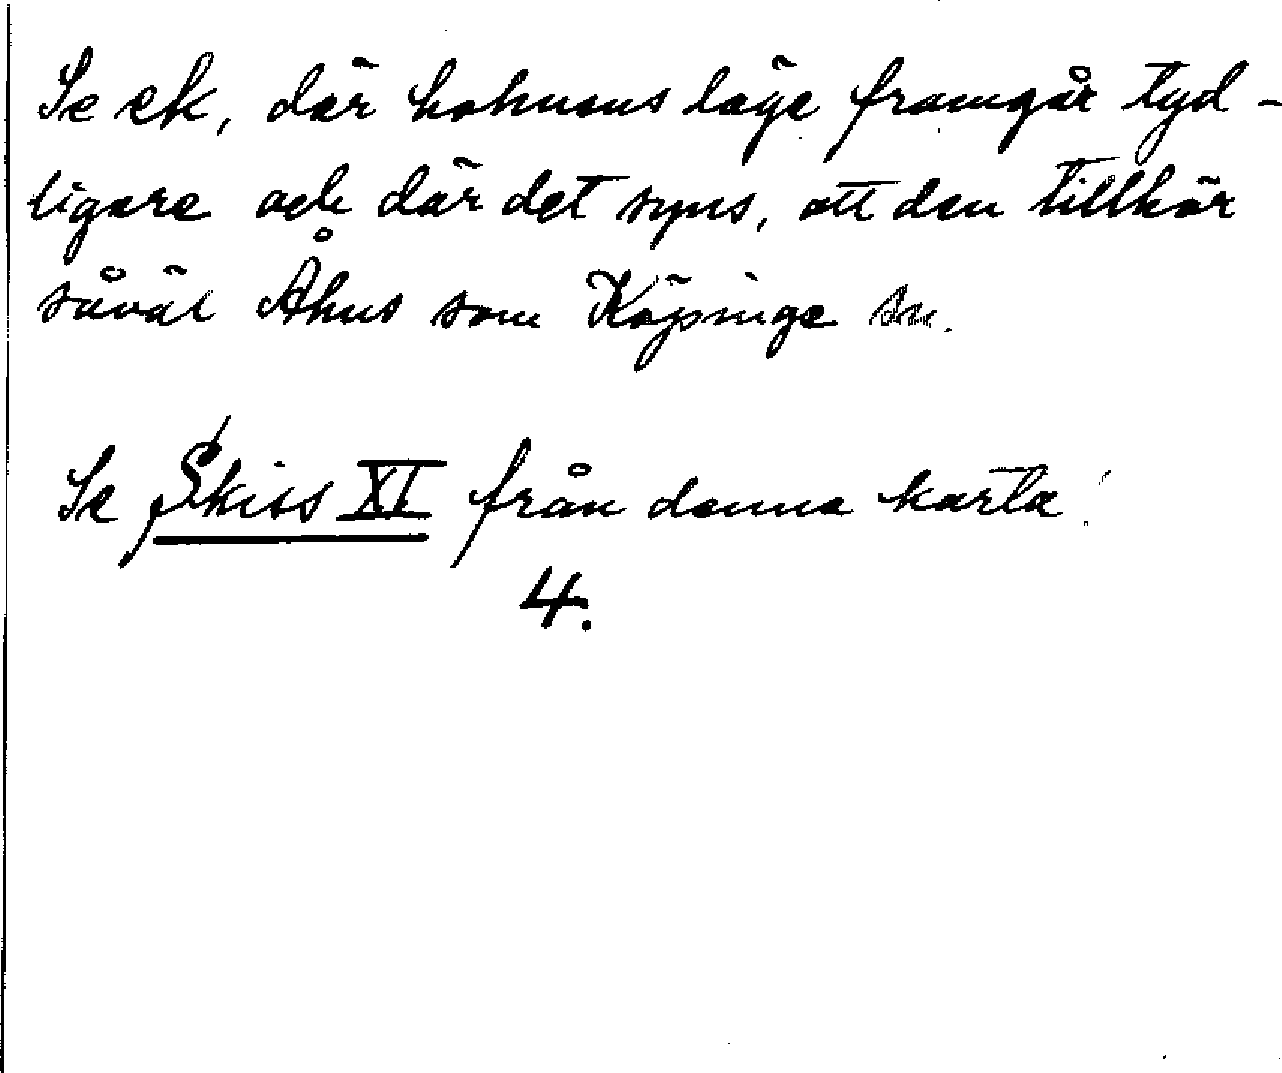 Se ek, där holmens läge framgår tyd-
ligare och där det syns, att den tillhör
såväl Åhus som Köpinge sn.
Se Skiss XI från denna karta!
4.